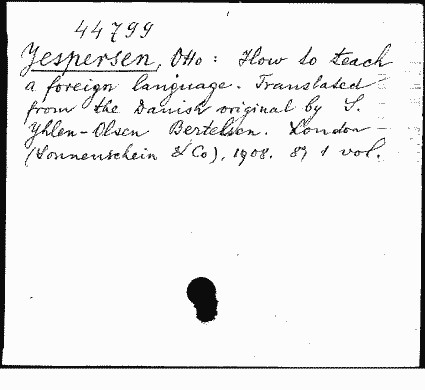 44799
Jespersen, Otto: How to teach
a foreign language. Translated
from the Danish original by S.
Yhlen-Olsen Bertelsen. London
(Sonnenschein & Co), 1908. 8°, 1 vol.